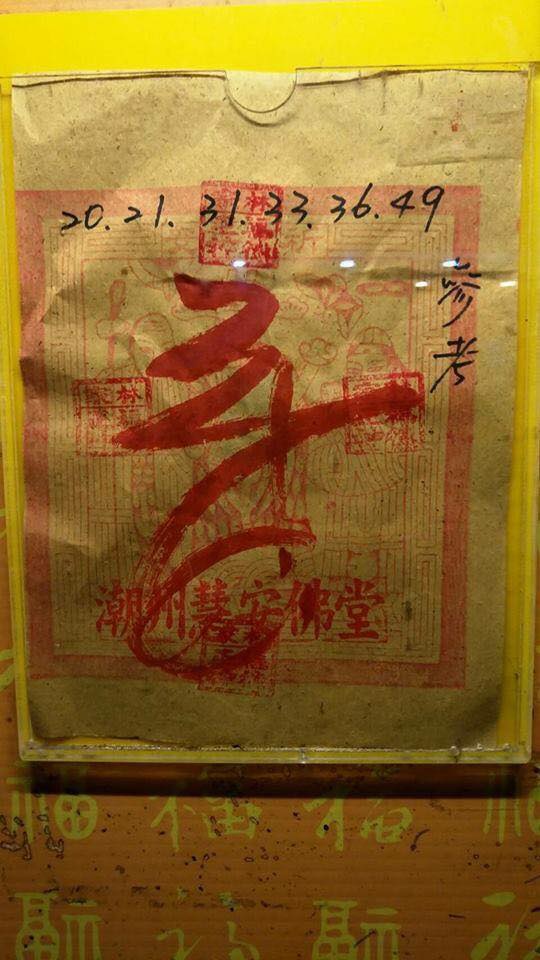 20.21.31.33.36.49
參考
潮州慧安佛堂
福 福 福 福
福 福 福 福